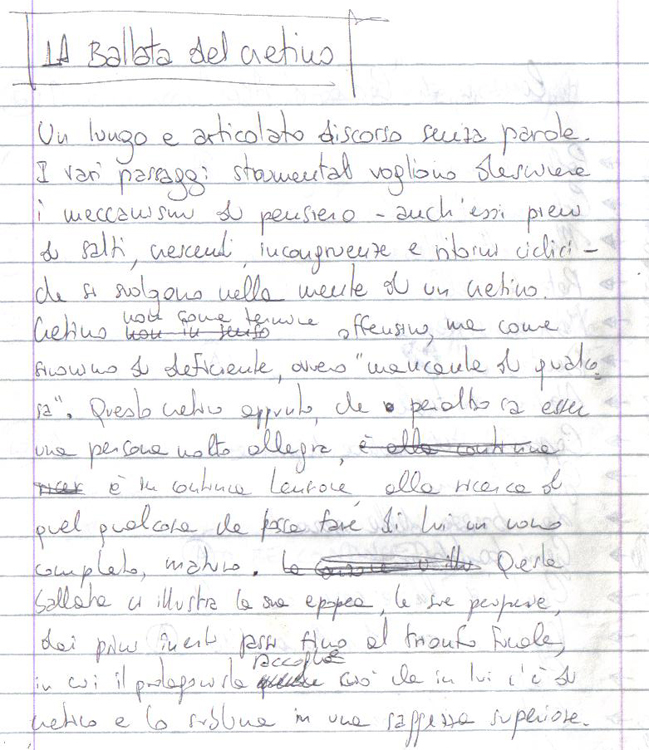 LA Ballata del cretino
Un lungo e articolato discorso senza parole.
I vari passaggi strumentali vogliono descrivere
i meccanismi di pensiero - anch'essi pieni
di salti, crescendi, incongruenze e ritorni ciclici -
che si svolgono nella mente di un cretino.
non come termine
Cretino non in senso offensivo, ma come
sinonimo di deficiente, ovvero "mancante di qualco-
sa". Questo cretino appunto, che peraltro sa essere
una persona molto allegra, è alla continua
ricer è in continua tensione, alla ricerca di
quel qualcosa che possa fare di lui un uomo
completo, maturo. La Questa
ballata ci illustra la sua epopea, le sue peripezie,
dai primi incerti passi fino al trionfo finale,
raccoglie
in cui il protagonista ciò che in lui c'è di
cretino e lo sublima in una saggezza superiore.